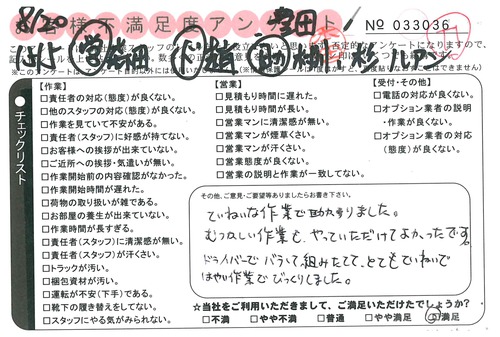 お客様不満足度アンケート
8/20
No 033036
チェックリスト
【作業】
□責任者の対応(態度)が良くない。
□他のスタッフの対応(態度)が良くない。
□作業を見ていて不安がある。
□責任者(スタッフ)に好感が持てない。
□お客様への挨拶が出来ていない。
□ご近所への挨拶・気遣いが無い。
□作業開始前の内容確認がなかった。
□作業開始時間が遅れた。
□荷物の取り扱いが雑である。
□お部屋の養生が出来ていない。
□作業時間が長すぎる。
□責任者(スタッフ)に清潔感が無い。
□責任者(スタッフ)が汗くさい。
□トラックが汚い。
□梱包資材が汚い。
□運転が不安(下手)である。
□靴下の履き替えをしてない。
□スタッフにやる気がみられない。
【営業】
□見積もり時間に遅れた。
□見積もり時間が長い。
□営業マンに清潔感が無い。
□営業マンが煙草くさい。
□営業マンが汗くさい。
□営業態度が良くない。
□営業の説明と作業が一致してない。
【受付・その他】
□電話の対応が良くない。
□オプション業者の説明
・作業が良くない。
□オプション業者の対応
(態度)が良くない。
その他、ご意見・ご要望等ありましたらお書き下さい。
ていねいな作業で助かりました。
むつかしい作業も、やっていただけてよかったです。
ドライバーでバラして、組みたてて、とてもていねいで
はやい作業でびっくりしました。
☆当社をご利用いただきまして、ご満足いただけたでしょうか?
□不満 □やや不満 □普通 □やや満足 □満足